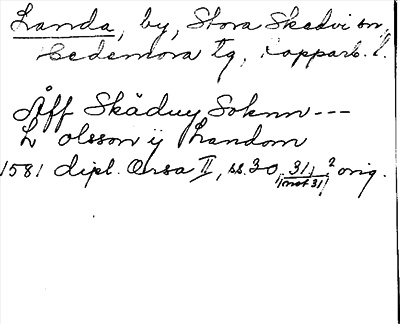 Landa, by, Stora Skedvi sn,
Hedemora tg, Kopparb. l.
Åff Skäduy Soknn ---
L olsson ij Landom
1581 dipl. Orsa II, ss. 30, 31, ? orig.
mot 31